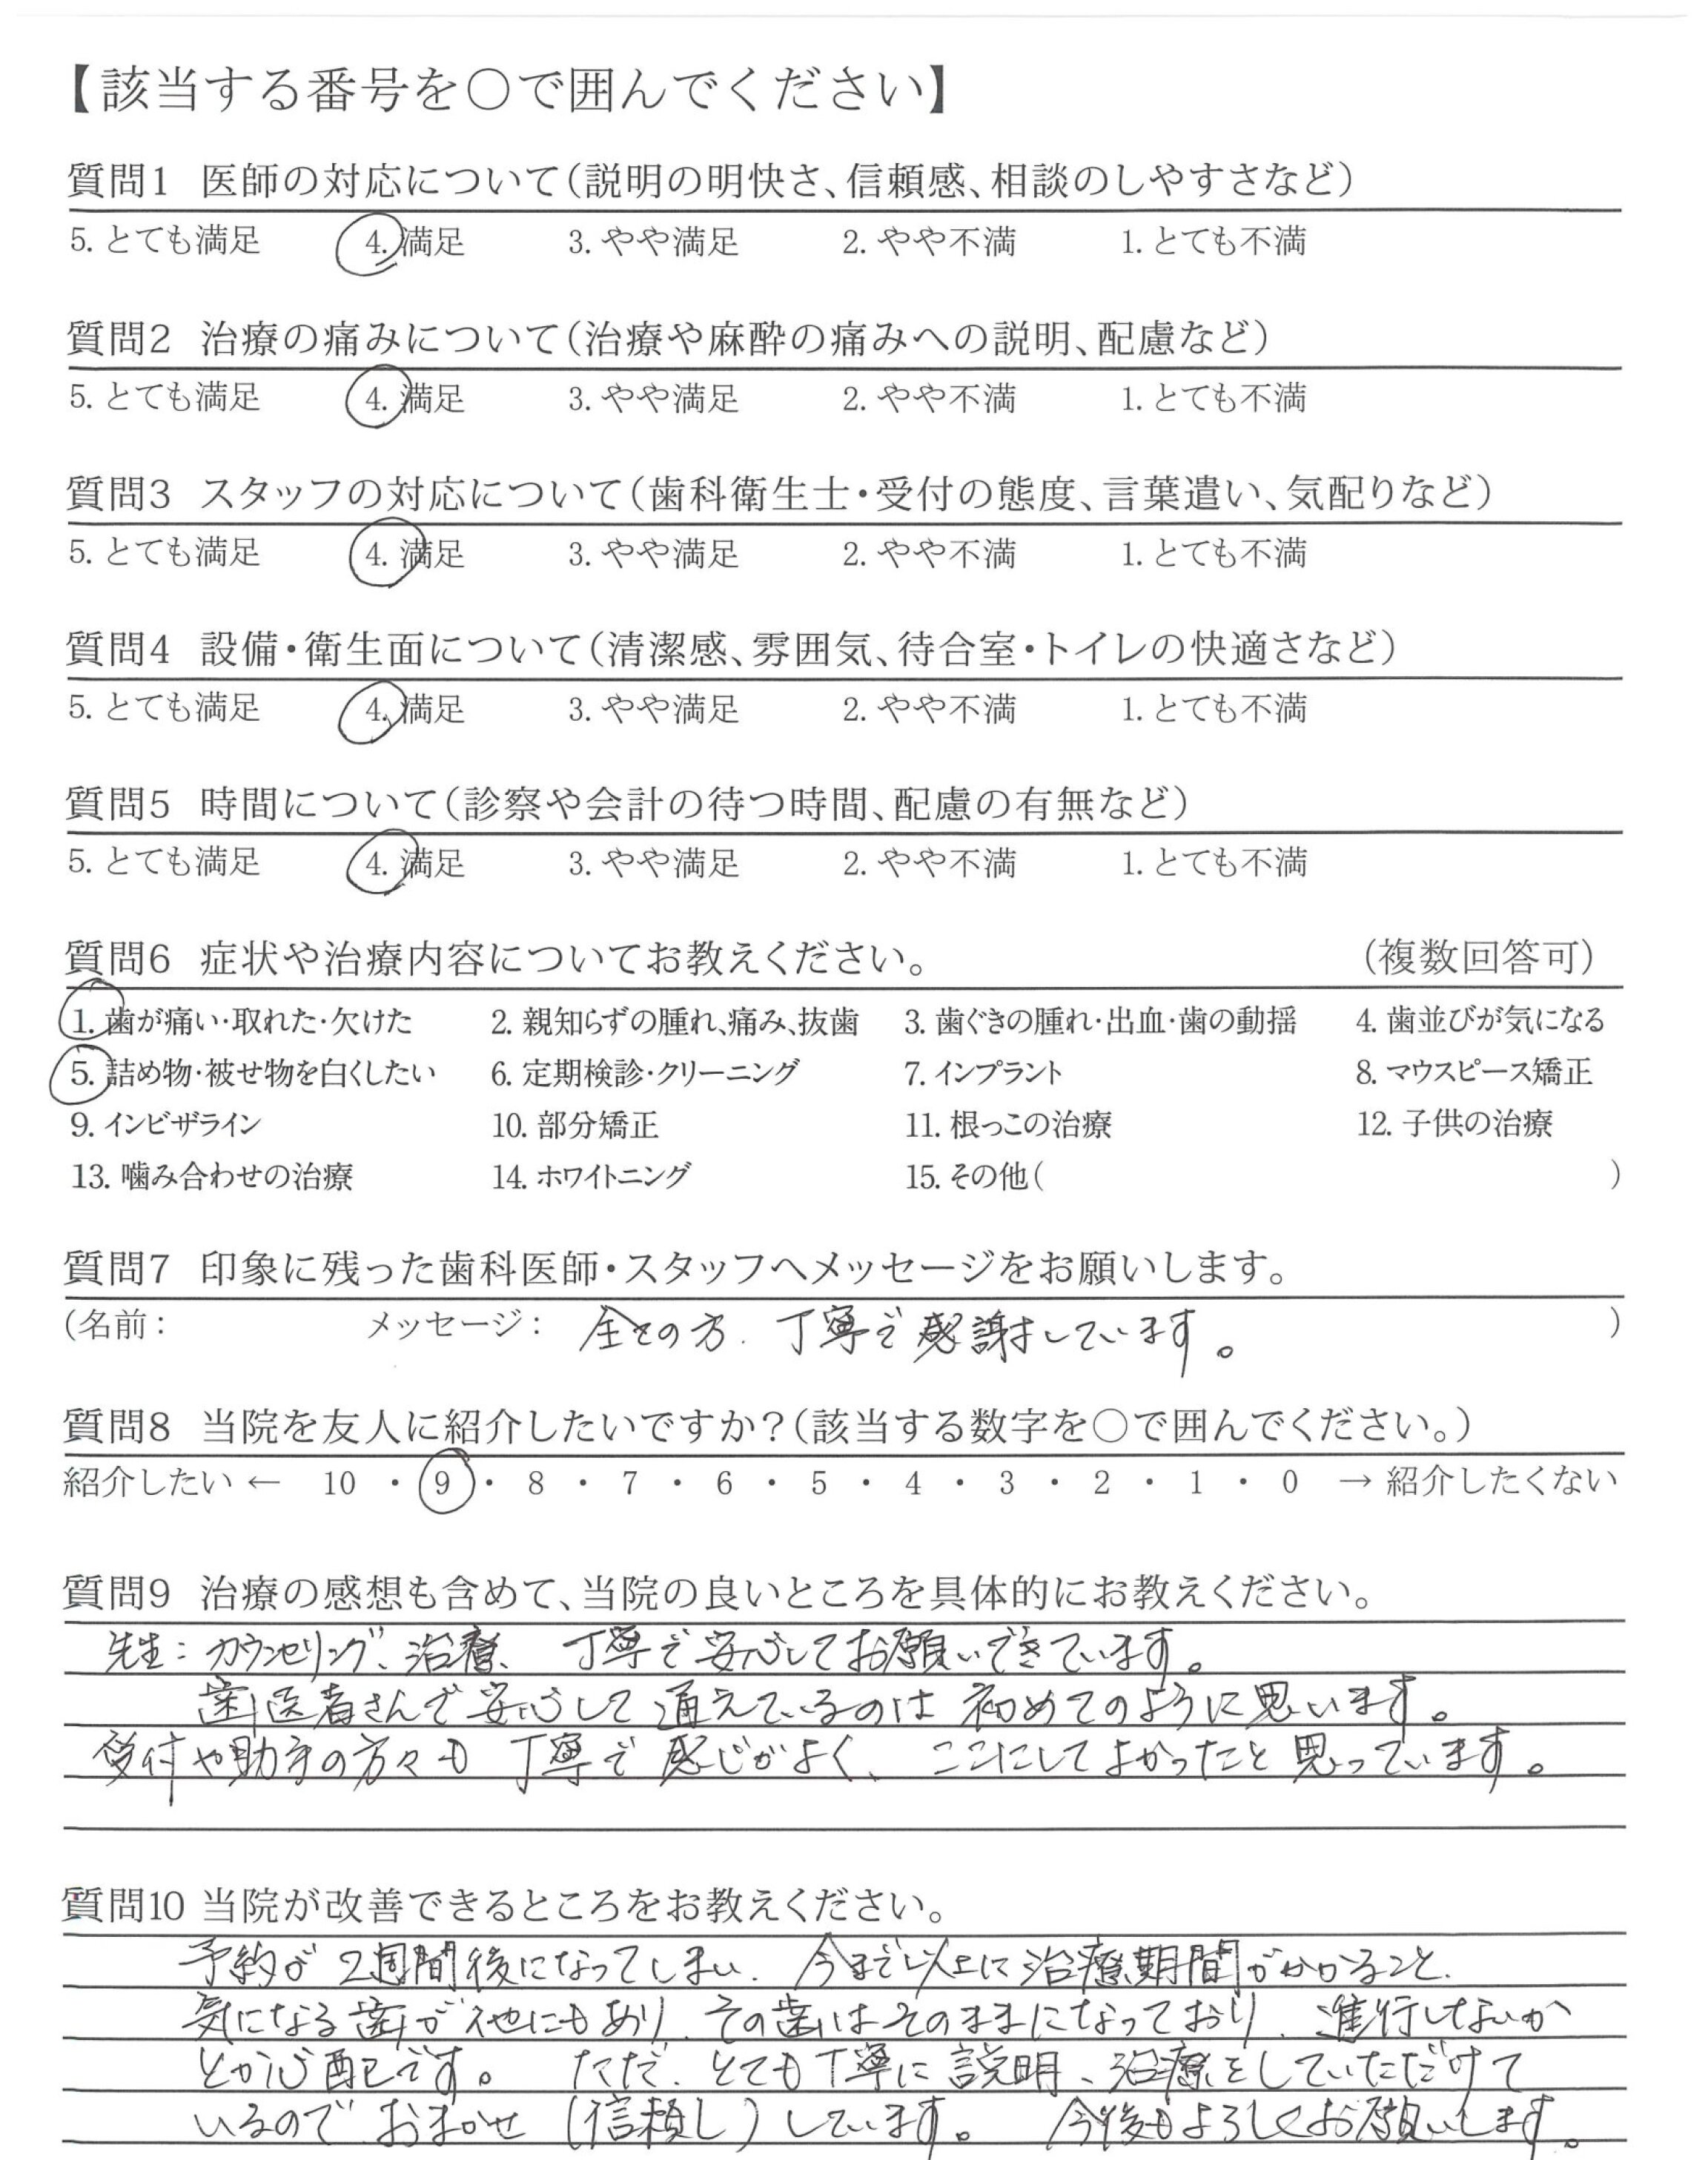 【該当する番号を○で囲んでください】
質問1 医師の対応について（説明の明快さ、信頼感、相談のしやすさなど）
5. とても満足 4. 満足 3. やや満足 2. やや不満 1. とても不満
質問2 治療の痛みについて（治療や麻酔の痛みへの説明、配慮など）
5. とても満足 4. 満足 3. やや満足 2. やや不満 1. とても不満
質問3 スタッフの対応について（歯科衛生士・受付の態度、言葉遣い、気配りなど）
5. とても満足 4. 満足 3. やや満足 2. やや不満 1. とても不満
質問4 設備・衛生面について（清潔感、雰囲気、待合室・トイレの快適さなど）
5. とても満足 4. 満足 3. やや満足 2. やや不満 1. とても不満
質問5 時間について（診察や会計の待つ時間、配慮の有無など）
5. とても満足 4. 満足 3. やや満足 2. やや不満 1. とても不満
質問6 症状や治療内容についてお教えください。 （複数回答可）
1. 歯が痛い・取れた・欠けた 2. 親知らずの腫れ、痛み、抜歯 3. 歯ぐきの腫れ・出血・歯の動揺 4. 歯並びが気になる
5. 詰め物・被せ物を白くしたい 6. 定期検診・クリーニング 7. インプラント 8. マウスピース矯正
9. インビザライン 10. 部分矯正 11. 根っこの治療 12. 子供の治療
13. 噛み合わせの治療 14. ホワイトニング 15. その他（ ）
質問7 印象に残った歯科医師・スタッフへメッセージをお願いします。
（名前： メッセージ： 全ての方、丁寧で感謝しています。 ）
質問8 当院を友人に紹介したいですか？（該当する数字を○で囲んでください。）
紹介したい ← 10 ・ 9 ・ 8 ・ 7 ・ 6 ・ 5 ・ 4 ・ 3 ・ 2 ・ 1 ・ 0 → 紹介したくない
質問9 治療の感想も含めて、当院の良いところを具体的にお教えください。
先生：カウンセリング、治療、丁寧で安心してお願いできています。
歯医者さんで安心して通えているのは初めてのように思います。
受付や助手の方々も丁寧で感じがよく、ここにしてよかったと思っています。
質問10 当院が改善できるところをお教えください。
予約が2週間後になってしまい、今まで以上に治療期間がかかること、
気になる歯が他にもあり、その歯はそのままになっており、進行しないか
どか心配です。 ただ、とても丁寧に説明、治療をしていただけて
いるので、おまかせ（信頼し）しています。 今後もよろしくお願いします。